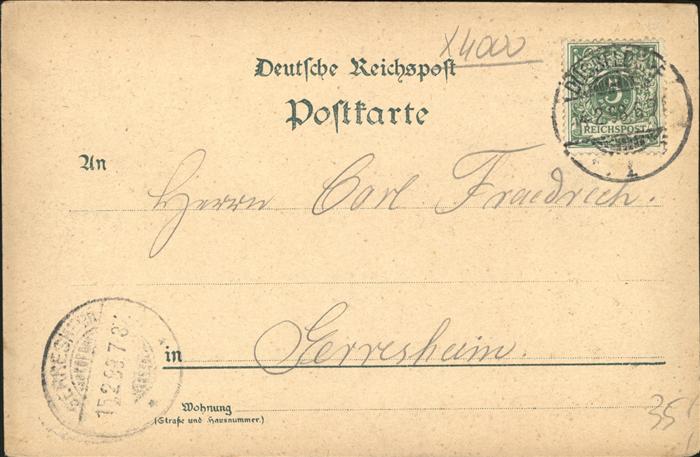 X400
Deutsche Reichspost
Postkarte
5
REICHSPOST
1
An
Herrn Carl Fraedrich.
GERRESHEIM
15.2.98.7-8
in Gerresheim.
Wohnung
(Straße und Hausnummer.)
35